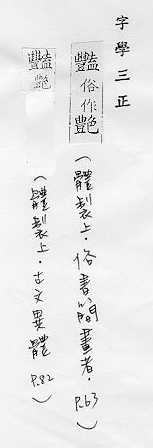 字學三正
豔俗作艷（體製上．俗書簡畫者．P.63）
豔艷（體製上．古文異體 P.82）